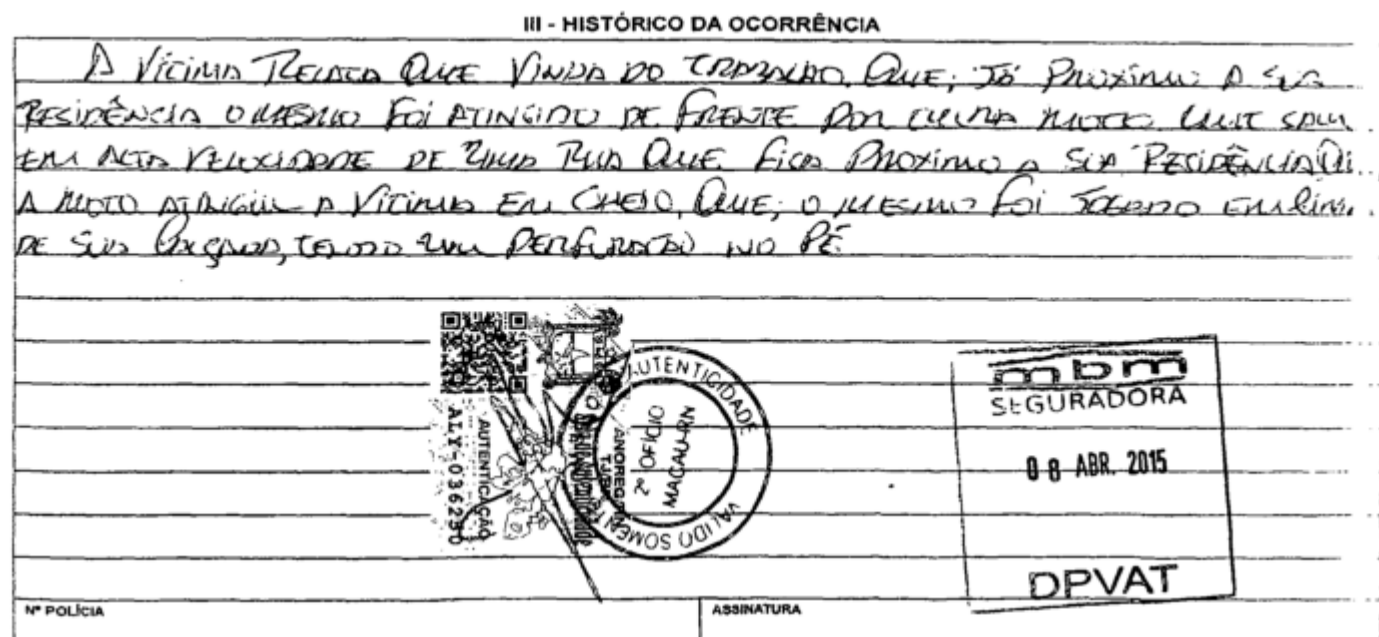 III - HISTÓRICO DA OCORRÊNCIA
A VÍTIMA RELATA QUE VINDA DO TRABALHO, QUE; JÁ PRÓXIMO A SUA
RESIDÊNCIA O MESMO FOI ATINGIDO DE FRENTE POR UMA MOTO QUE SAIU
EM ALTA VELOCIDADE DE UMA RUA QUE FICA PRÓXIMO A SUA RESIDÊNCIA
A MOTO ATINGIU A VÍTIMA EM CHEIO, QUE; O MESMO FOI JOGADO EM CIMA
DE SUA CALÇADA, TENDO UMA PERFURAÇÃO NO PÉ
AUTENTICIDADE
2º OFÍCIO
MACAU-RN
VALIDO SOMENTE
ANOREG/RN
AUTENTICAÇÃO
ALY-036250
mbm
SEGURADORA
08 ABR. 2015
DPVAT
Nº POLÍCIA
ASSINATURA